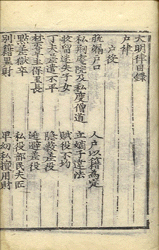 大明律目錄
戶律
戶役
脫漏戶口 人戶以籍為定
私刱庵院及私度僧道 立嫡子違法
收留迷失子女 賦役不均
丁夫差遣不平 隱蔽差役
禁革主保里長 逃避差役
點差獄卒 私役部民夫匠
別籍異財 卑幼私擅用財